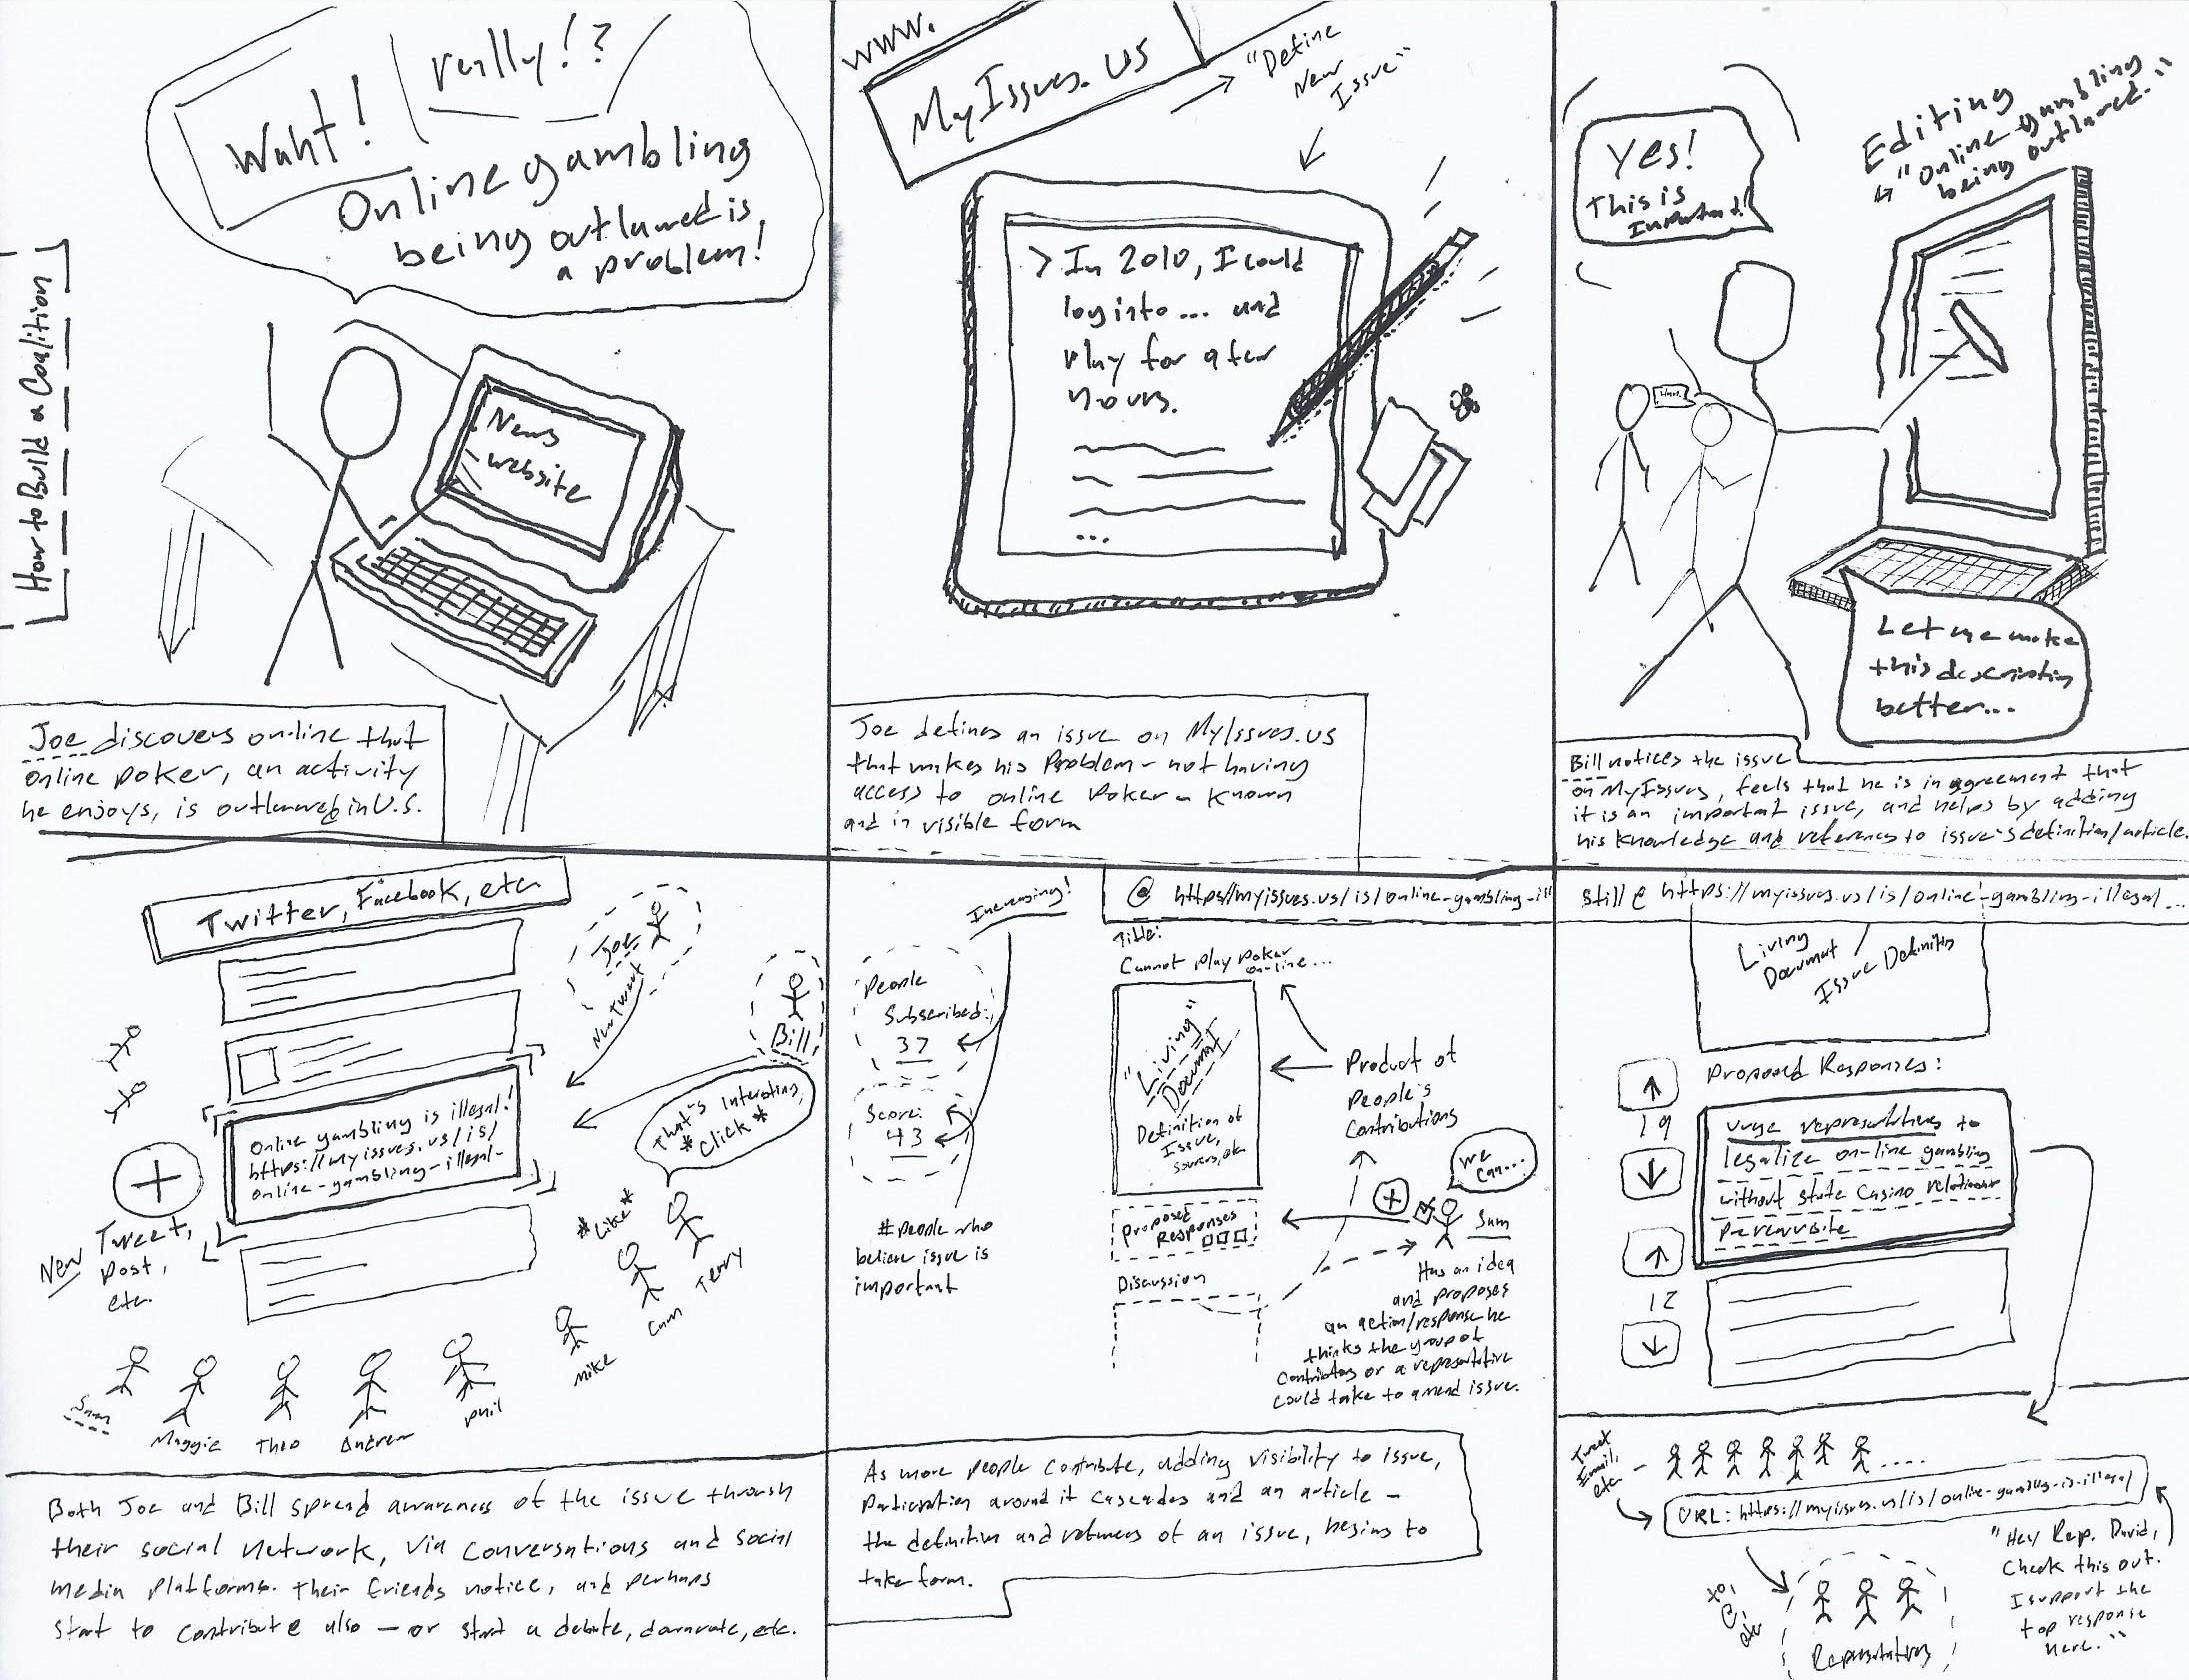 How to Build a Coalition
Waht!
really!?
Online gambling
being outlawed is
a problem!
News
website
Joe discovers online that
online poker, an activity
he enjoys, is outlawed in U.S.
www.
MyIssues.us
"Define
New
Issue"
> In 2010, I could
log into... and
play for a few
hours.
...
Joe defines an issue on MyIssues.us
that makes his problem - not having
access to online poker - known
and in visible form
Yes!
This is
Important!
Editing
"Online gambling
being outlawed."
Let me make
this description
better...
Bill notices the issue
on MyIssues, feels that he is in agreement that
it is an important issue, and helps by adding
his knowledge and references to issue's definition/article.
Twitter, Facebook, etc.
Joe
New Tweet
Bill
Online gambling is illegal!
https://myissues.us/is/
online-gambling-illegal-
That's Interesting,
*Click*
New Tweet,
post,
etc.
*Like*
Terry
Cam
Mike
Phil
Andrew
Theo
Maggie
Sam
Both Joe and Bill spread awareness of the issue through
their social network, via conversations and social
media platforms. Their friends notice, and perhaps
start to contribute also - or start a debate, etc.
Increasing!
@ https//myissues.us/is/online-gambling-ill
Title:
Cannot play poker
on-line...
People
Subscribed:
37
Score:
43
# people who
believe issue is
important
"Living"
Document
Definition of
Issue,
sources, etc
Product of
People's
Contributions
We
Can...
Proposed
Responses
Sam
Discussion
Has an idea
and proposes
an action/response he
thinks the group of
contributors or a representative
could take to amend issue.
As more people contribute, adding visibility to issue,
participation around it cascades and an article -
the definition and of an issue, begins to
take form.
Still @ https://myissues.us/is/online-gambling-illegal...
Living
Document
Issue Definition
Proposed Responses:
19
Urge representatives to
legalize on-line gambling
without state casino relationship
prerequisite
12
Tweet
Email,
etc
....
URL: https://myissues.us/is/online-gambling-is-illegal
"Hey Rep. David,
Check this out.
I support the
top response
here."
etc
Representatives